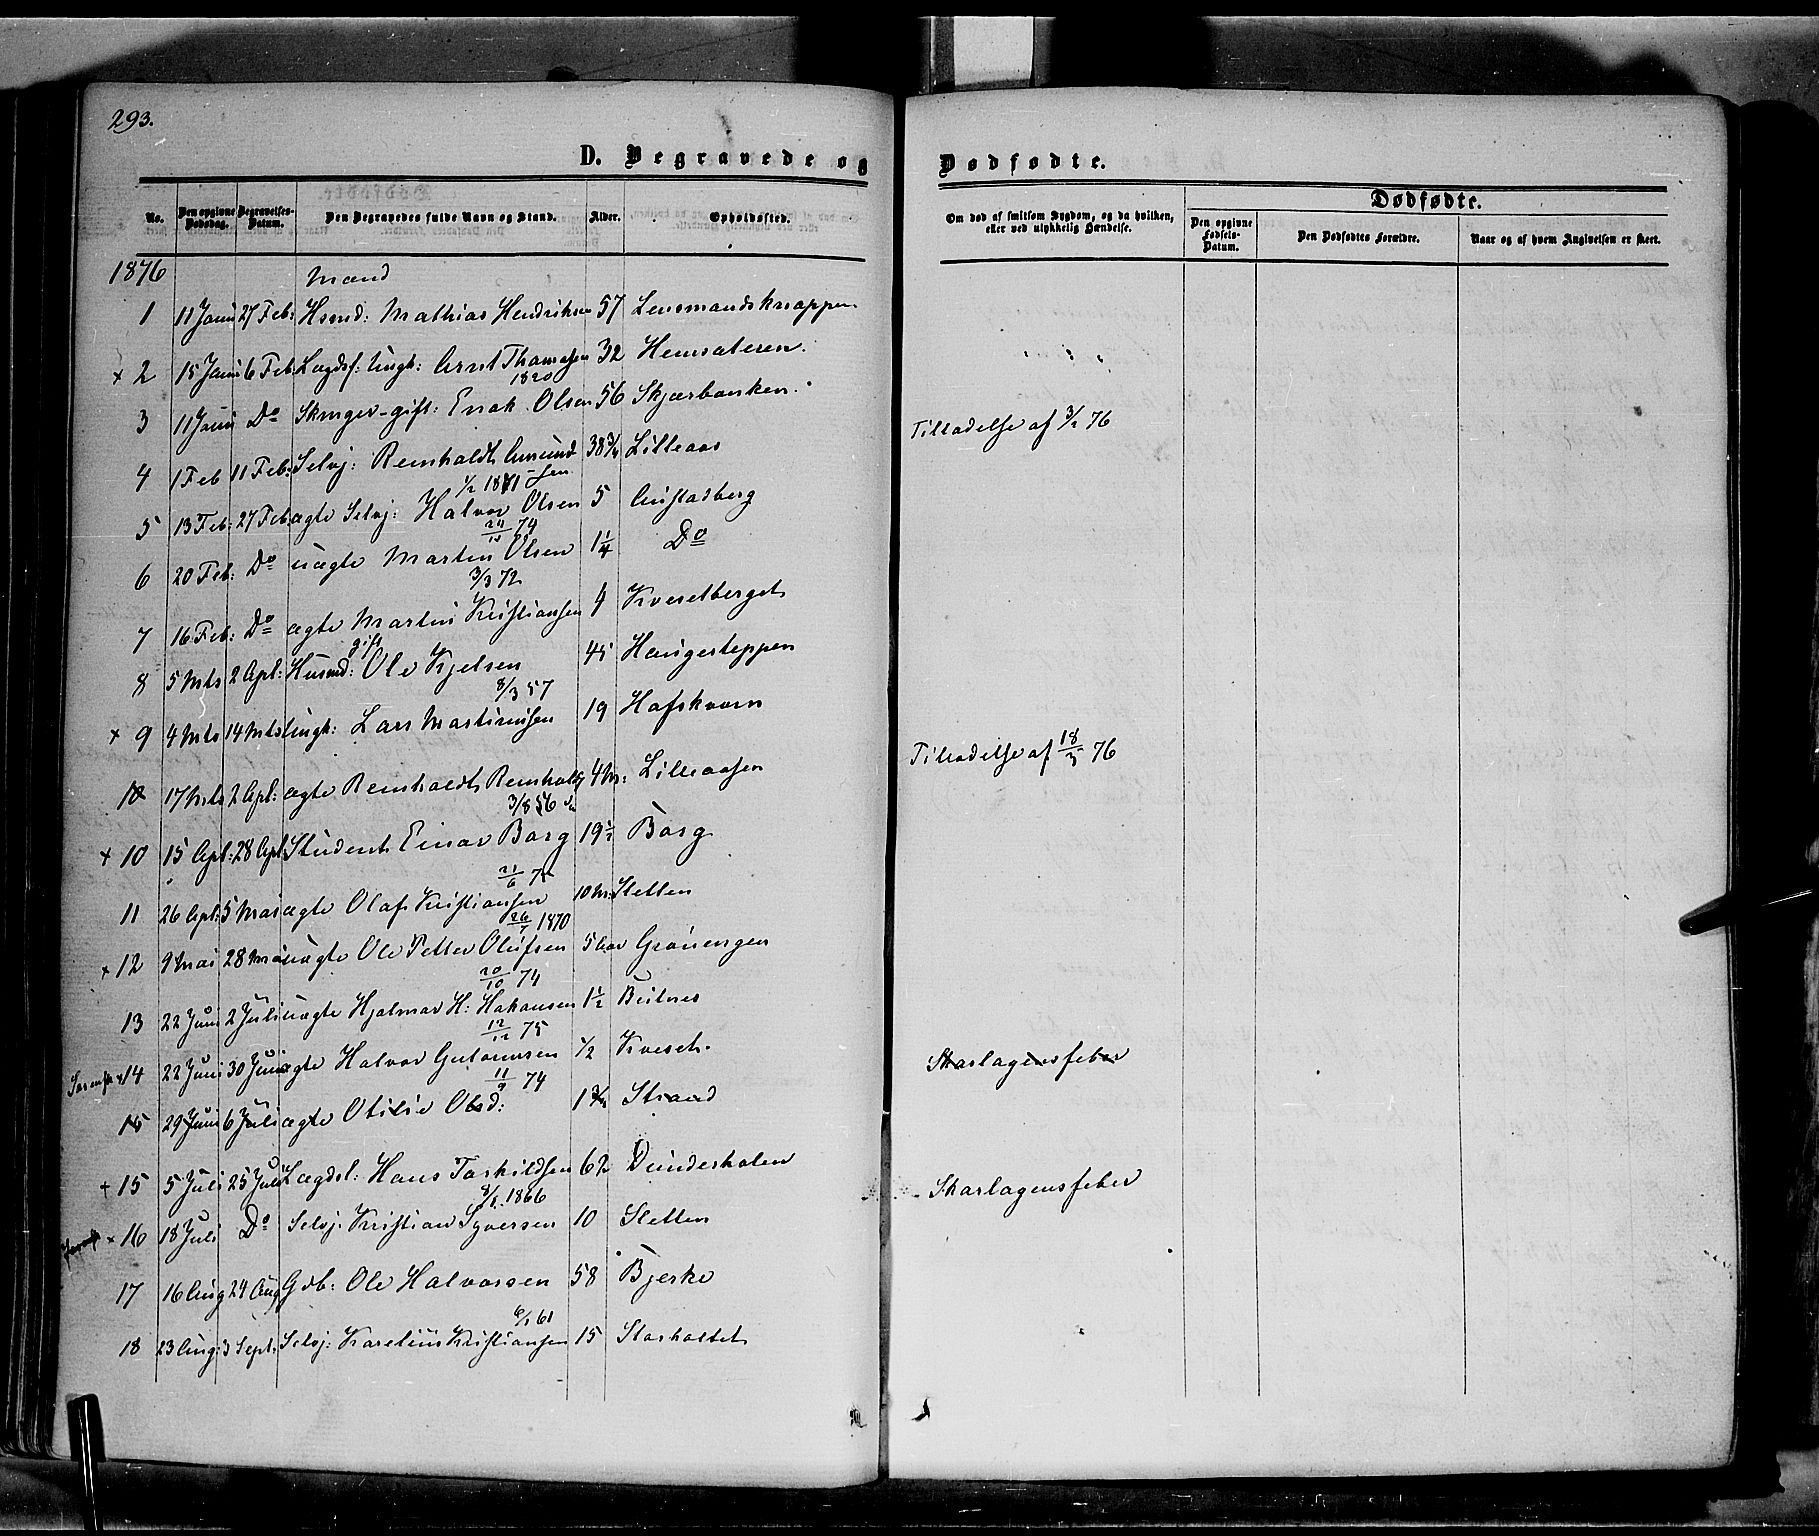 293.
D. Begravede og Dødfødte.
No. Den opgivne Dødsdag. Begravelses-Datum. Den Begravedes fulde Navn og Stand. Alder. Opholdssted. Om død af smitsom Sygdom, og da hvilken, eller ved ulykkelig Hændelse. Dødfødte.
Den opgivne Fødsels-Datum. Den Dødfødtes Forældre. Naar og af hvem Angivelsen er skeet.
1876 Mænd
1 11 Janu 27 Feb: Hsmd: Mathias Hendriksen 57 Lensmandsknappen
x 2 15 Janu 6 Feb Lægdsf: Ungk: Arnt Thomasen 32 Hemsateren
1820
3 11 Janu Do gift: Enok Olsen 56 Skjærbanken Tilladelse af 3/2 76
4 1 Feb 11 Feb: Selvj: Reinholdt Amundsen 38 3/4 Lilleaas
1/2 1871
5 13 Feb: 27 Feb ægte Selvj: Halvor Olsen 5 Austadberg
74
6 20 Feb: Do uægte Martin Olsen 1 1/4 Do
3/3 72
7 16 Feb: Do ægte Martin Kristiansen 4 Kveselberget
gift
8 5 Mts 2 Apl: Husmd: Ole Kjelsen 45 Haugesteppen
8/3 57
x 9 4 Mts 14 Mts Ungk: Lars Martinusen 19 Hofskvern Tilladelse af 18/3 76
10 17 Mts 2 Apl: ægte Reinholdt Reinholds 4 M: Lilleaasen
3/8 56
x 10 15 Apl: 28 Apl Student Einar Borg 19 1/2 Borg
21/6 75
11 26 Apl: 5 Mai ægte Olaf Kristiansen 10 M: Sletten
26/7 1870
x 12 9 Mai 28 Mai uægte Ole Petter Olufsen 5 Aar Grønengen
20/10 74
13 22 Juni 2 Juli uægte Hjalmar H: Hakansen 1 1/2 Beitnes
12/12 75
14 22 Juni 30 Juni ægte Halvor Gulbrensen 1/2 Kveset. Skarlagensfeber
11/9 74
15 29 Juni 6 Juli ægte Otilie Olsd: 1 3/4 Strand
+ 15 5 Juli 25 Juli Lægdsl: Hans Torkildsen 62 Dunderholen Skarlagensfeber
1866
x 16 18 Juli Do Selvj: Kristian Syversen 10 Sletten
17 16 Aug 24 Aug Gdb: Ole Halvorsen 58 Bjerke
6/1 61
18 23 Aug 3 Sept. Selvj: Karelius Kristiansen 15 Storholtet